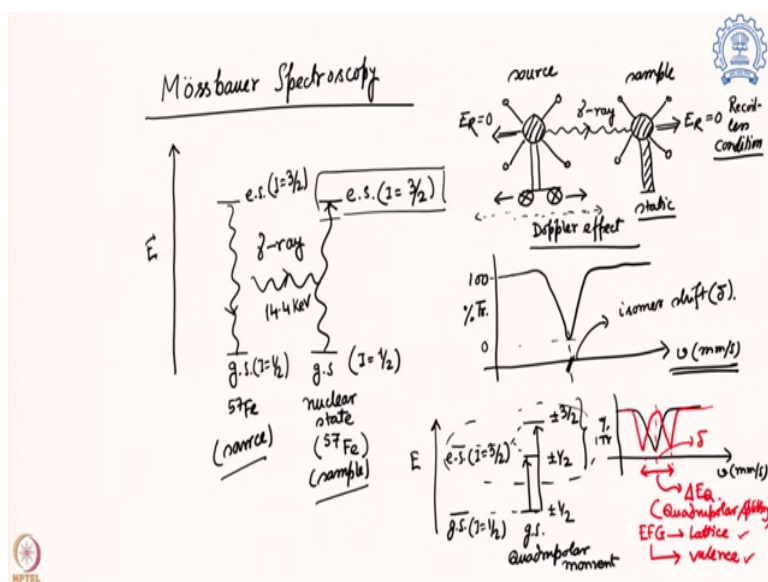 Mössbauer Spectroscopy
E
e.s. (I=3/2)
e.s. (I=3/2)
γ-ray
14.4 KeV
g.s. (I=1/2)
g.s (I=1/2)
57Fe
(source)
nuclear
state
(57Fe)
(sample)
source
sample
γ-ray
ER=0
ER=0
Recoil-
less
Condition
static
Doppler effect
100
% Tr.
0
isomer shift (δ).
υ (mm/s)
E
e.s. (I=3/2)
±3/2
±1/2
g.s. (I=1/2)
±1/2
g.s.
Quadrupolar
moment
% Tr
υ (mm/s)
δ
ΔEQ
(Quadrupolar splitting)
EFG → Lattice ✓
↳ valence ✓
NPTEL